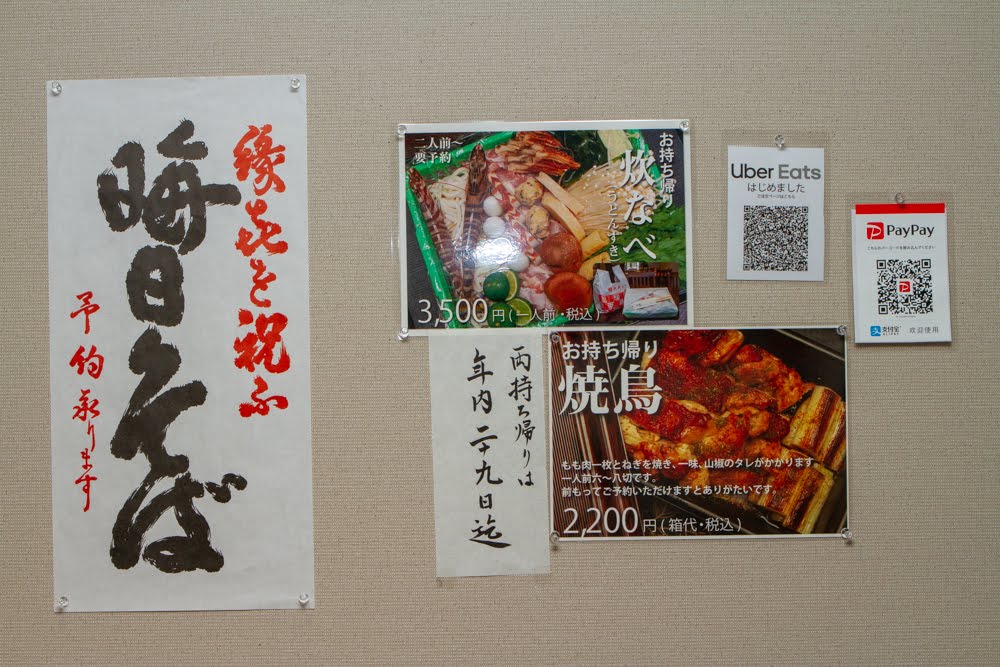 縁喜を祝ふ
晦日そば
予約承ります
二人前〜
要予約
お持ち帰り
炊なべ
(うどんすき)
3,500円(一人前・税込)
両持ち帰りは
年内二十九日迄
お持ち帰り
焼鳥
もも肉一枚とねぎを焼き、一味、山椒のタレがかかります。
一人前六〜八切です。
前もってご予約いただけますとありがたいです。
2,200円(箱代・税込)
Uber Eats
はじめました
ご注文ページはこちら
PayPay
支付宝
ALIPAY
欢迎使用